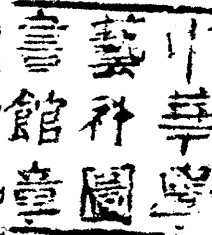 中華學
藝社圖
書館章